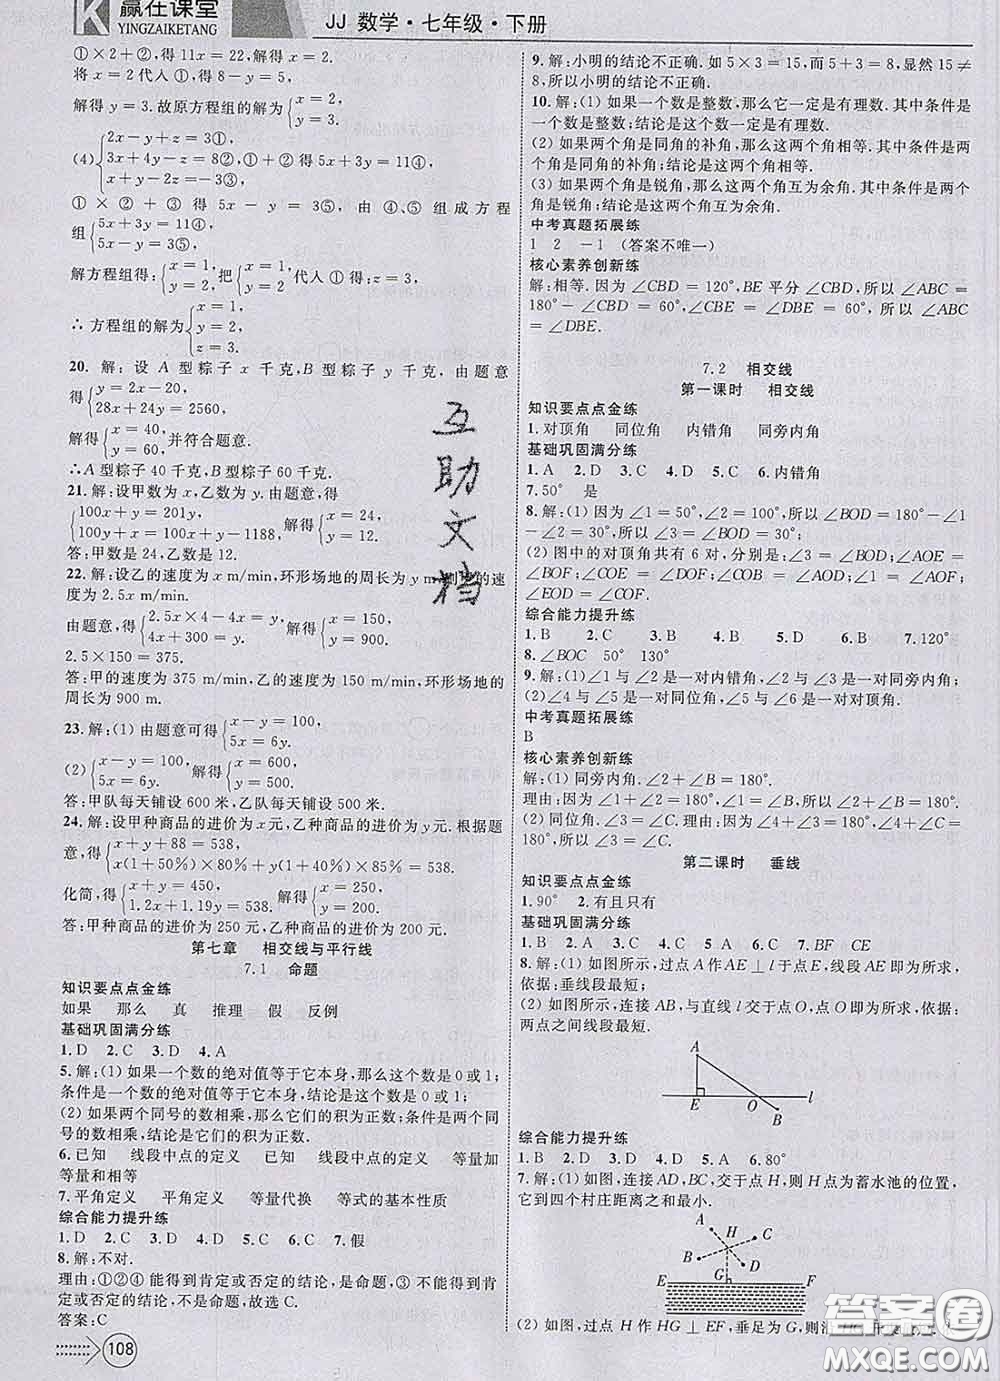 赢在课堂
YINGZAIKETANG
JJ 数学·七年级·下册
①×2+②,得11x=22,解得x=2.
将x=2代入①,得8-y=5,
解得y=3.故原方程组的解为{x=2, y=3.
(4){2x-y+z=3①, 3x+4y-z=8②, x+y-2z=-3③. ①+②得5x+3y=11④,
①×2+③得5x-y=3⑤,由④、⑤组成方程
组{5x+3y=11④, 5x-y=3⑤,
解方程组得:{x=1, y=2, 把{x=1, y=2,代入①得:z=3,
∴方程组的解为{x=1, y=2, z=3.
20.解:设A型粽子x千克,B型粽子y千克,由题意
得{y=2x-20, 28x+24y=2560,
解得{x=40, y=60, 并符合题意.
∴A型粽子40千克,B型粽子60千克.
21.解:设甲数为x,乙数为y.由题意,得
{100x+y=201y, 100y+x=100x+y-1188, 解得{x=24, y=12.
答:甲数是24,乙数是12.
22.解:设乙的速度为x m/min,环形场地的周长为y m,则甲的速
度为2.5x m/min.
由题意,得{2.5x×4-4x=y, 4x+300=y, 解得{x=150, y=900.
2.5×150=375.
答:甲的速度为375 m/min,乙的速度为150 m/min,环形场地的
周长为900 m.
23.解:(1)由题意可得{x-y=100, 5x=6y.
(2){x-y=100, 5x=6y. 解得{x=600, y=500.
答:甲队每天铺设600米,乙队每天铺设500米.
24.解:设甲种商品的进价为x元,乙种商品的进价为y元.根据题
意,得{x+y+88=538, x(1+50%)×80%+y(1+10%)=538.
化简,得{x+y=450, 1.2x+1.1y=538. 解得{x=250, y=200.
答:甲种商品的进价为250元,乙种商品的进价为200元.
第七章 相交线与平行线
7.1 命题
知识要点点金练
如果 那么 真 推理 假 反例
基础巩固满分练
1.D 2.C 3.D 4.A
5.解:(1)如果一个数的绝对值等于它本身,那么这个数是0或1;
条件是一个数的绝对值等于它本身,结论是这个数是0或1.
(2)如果两个同号的数相乘,那么它们的积为正数;条件是两个同
号的数相乘,结论是它们的积为正数.
6.已知 线段中点的定义 已知 线段中点的定义 等量加
等量和相等
7.平角定义 平角定义 等量代换 等式的基本性质
综合能力提升练
1.D 2.D 3.C 4.D 5.D 6.D 7.C
8.解:不对.
理由:①②④能得到肯定或否定的结论,是命题,③不能得到肯
定或否定的结论,不是命题,故选C.
答案:C
108
9.解:小明的结论不正确.如5×3=15,而5+3=8,显然15≠
8,所以小明的结论不正确.
10.解:(1)如果一个数是整数,那么它一定是有理数.其中条件是
一个数是整数;结论是这个数一定是有理数.
(2)如果两个角是同角的补角,那么这两个角相等.其中条件是两
个角是同角的补角;结论是这两个角相等.
(3)如果两个角是锐角,那么这两个角互为余角.其中条件是两个
角是锐角;结论是这两个角互为余角.
中考真题拓展练
1 2 -1 (答案不唯一)
核心素养创新练
解:相等.因为∠CBD=120°,BE平分∠CBD,所以∠ABC=
180°-∠CBD=60°,∠DBE=∠CBE=60°,所以∠ABC
=∠DBE.
7.2 相交线
第一课时 相交线
知识要点点金练
1.对顶角 同位角 内错角 同旁内角
基础巩固满分练
1.A 2.D 3.C 4.D 5.C 6.内错角
7.50° 是
8.解:(1)因为∠1=50°,∠2=100°,所以∠BOD=180°-∠1
-∠2=30°,所以∠3=∠BOD=30°;
(2)图中的对顶角共有6对,分别是:∠3=∠BOD;∠AOE=
∠BOF;∠COE=∠DOF;∠BOC=∠AOD;∠AOF=
∠BOE;∠COF=∠DOE.
综合能力提升练
1.B 2.C 3.C 4.B 5.D 6.B 7.120°
8.∠BOC 50° 130°
9.解:(1)∠1与∠2是一对内错角,∠1与∠3是一对同旁内角.
(2)∠4与∠5是一对同位角,∠5与∠6是一对对顶角.
中考真题拓展练
B
核心素养创新练
解:(1)同旁内角.∠2+∠B=180°.
理由:因为∠1+∠2=180°,∠1=∠B,所以∠2+∠B=180°.
(2)同位角.∠4=∠C.理由:因为∠3+∠4=180°,∠3+∠C=
180°,所以∠4=∠C.
第二课时 垂线
知识要点点金练
1.90° 2.有且只有
基础巩固满分练
1.B 2.A 3.C 4.A 5.C 6.C 7.BF CE
8.解:(1)如图所示,过点A作AE⊥l于点E,线段AE即为所求,
依据:垂线段最短;
(2)如图所示,连接AB,与直线l交于点O,点O即为所求,依据:
两点之间线段最短.
A
E O l
B
综合能力提升练
1.C 2.A 3.A 4.D 5.A 6.80°
7.解:(1)如图,连接AD,BC,交于点H,则点H为蓄水池的位置,
它到四个村庄距离之和最小.
A H C
B D
E G F
(2)如图,过点H作HG⊥EF,垂足为G,则沿
互助文档
答案圈
MXQE.COM